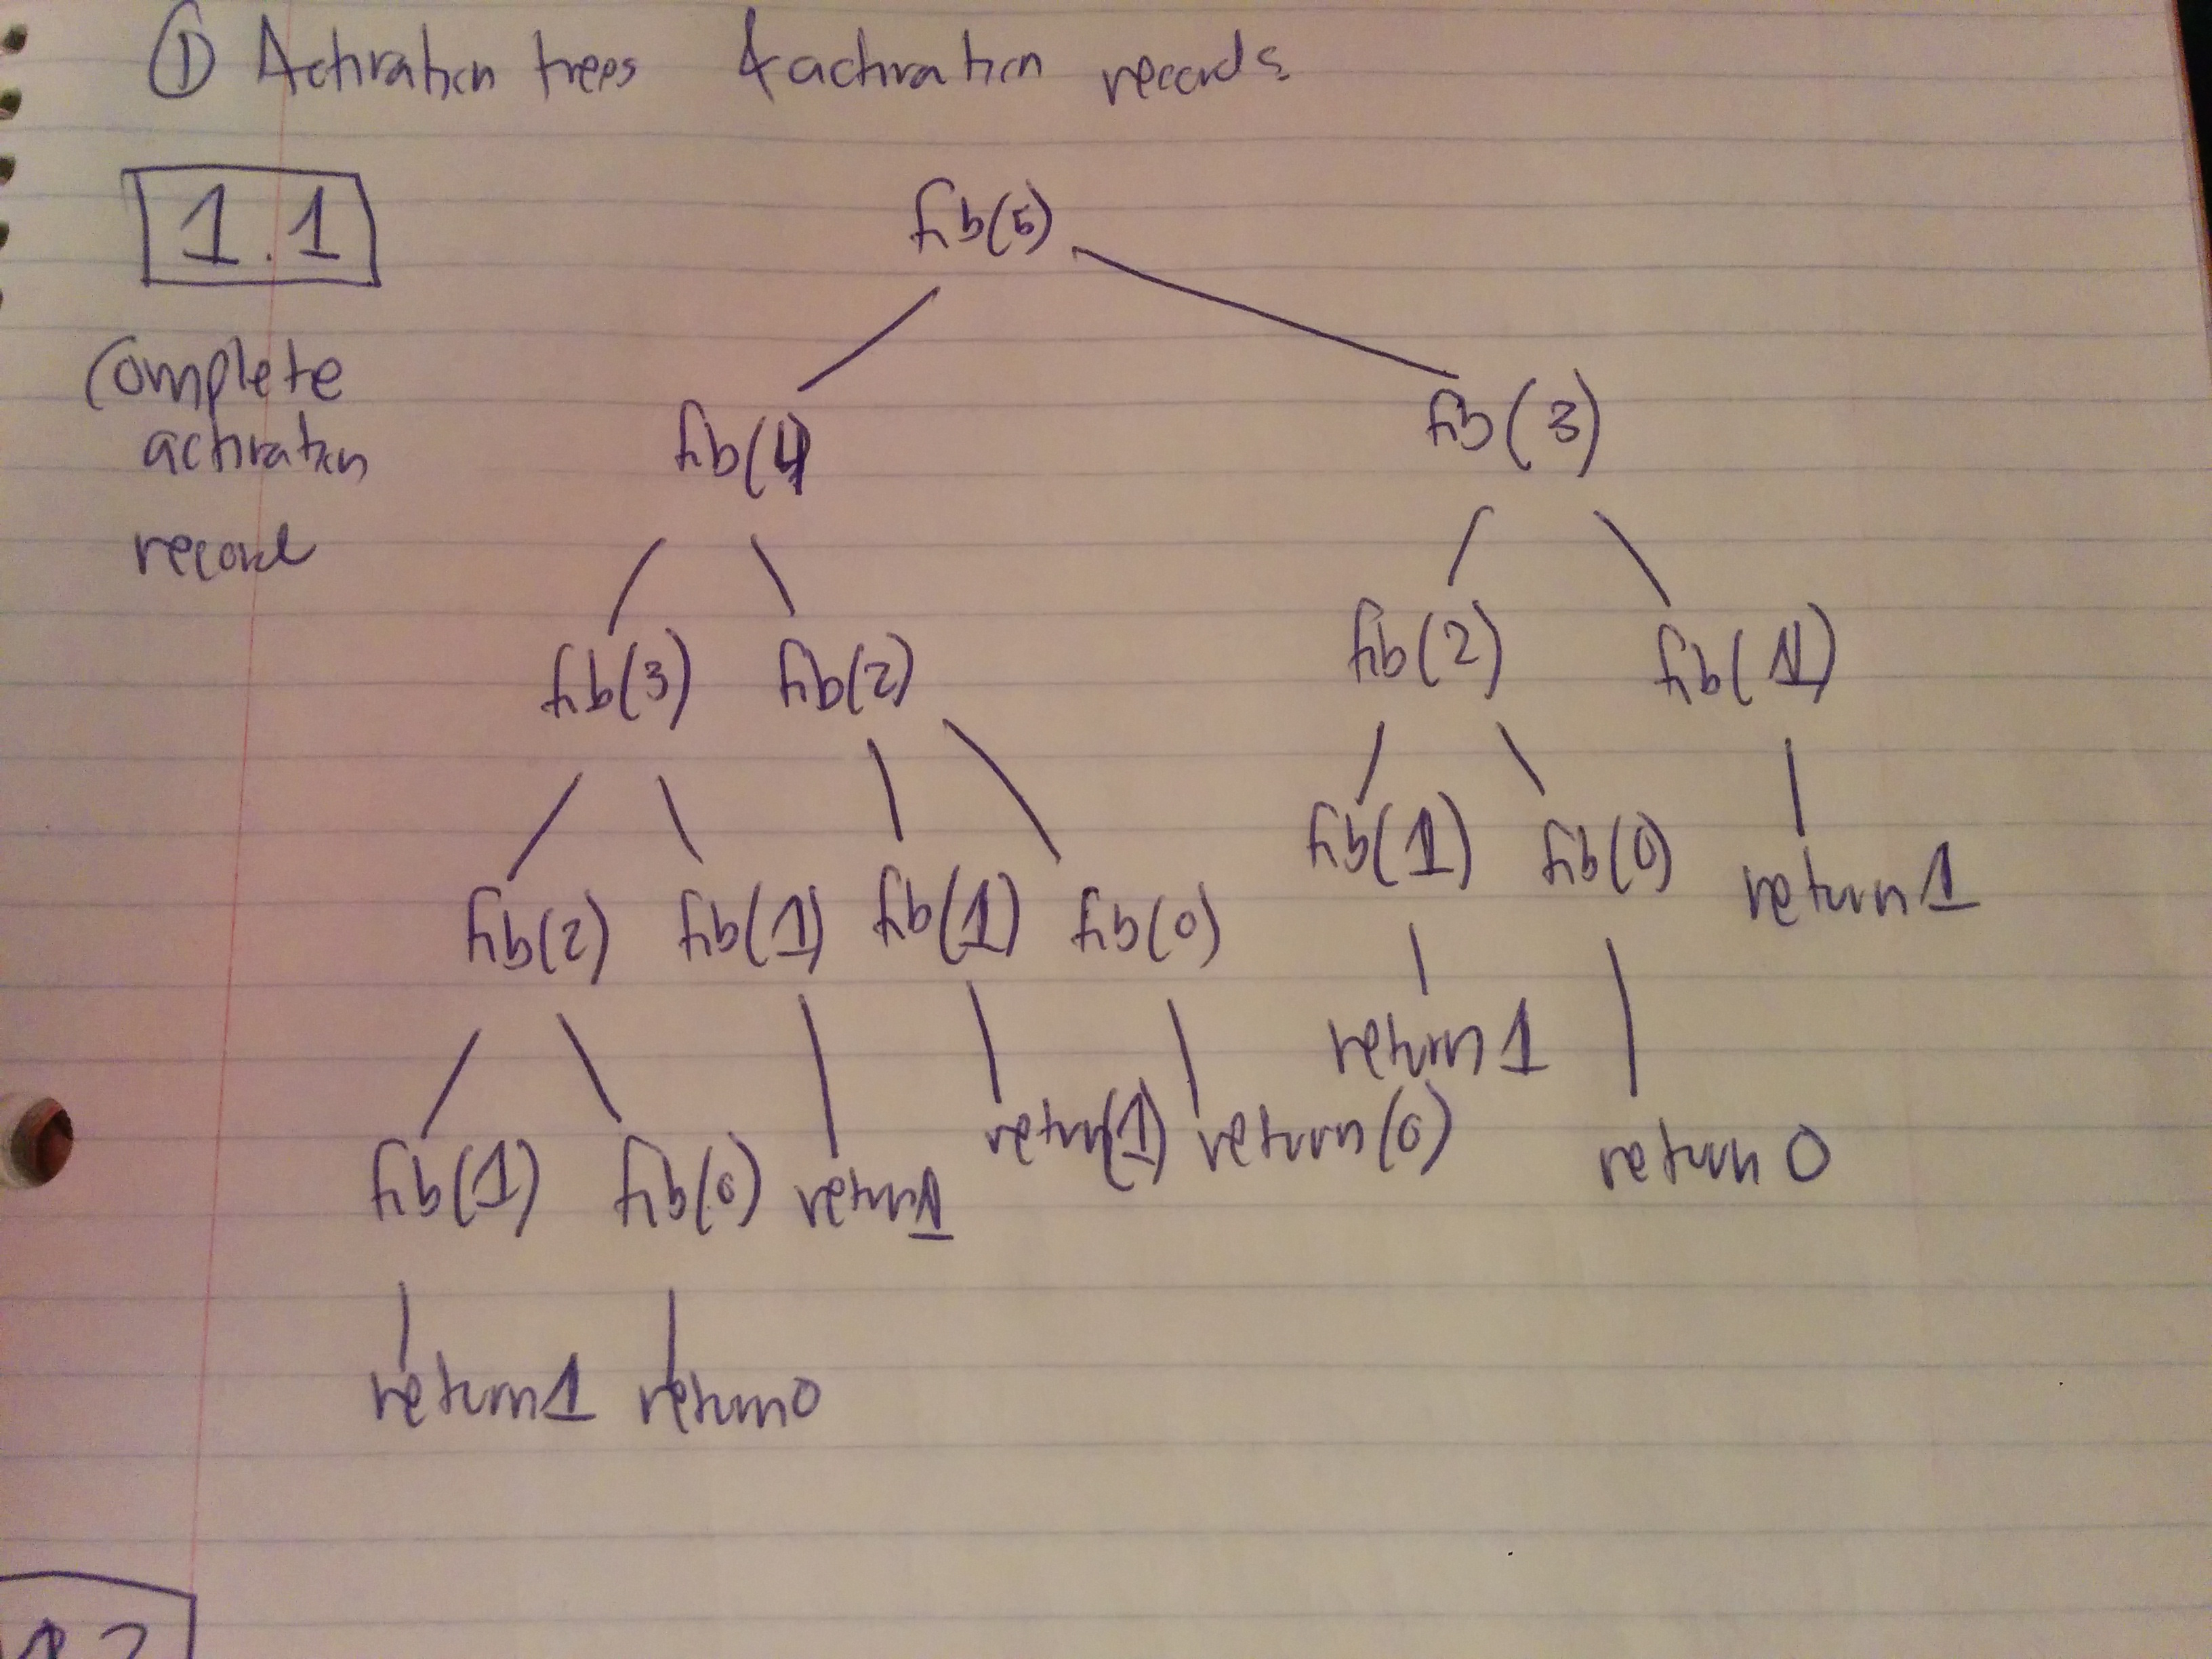 ① Activation trees & activation records
1.1
fib(5)
Complete
activation
record
fib(4)
fib(3)
fib(3) fib(2)
fib(2) fib(1)
fib(2) fib(1) fib(1) fib(0)
fib(1) fib(0) return 1
fib(1) fib(0) return 1 return(1) return(0)
return 1
return 0
return 1 return 0